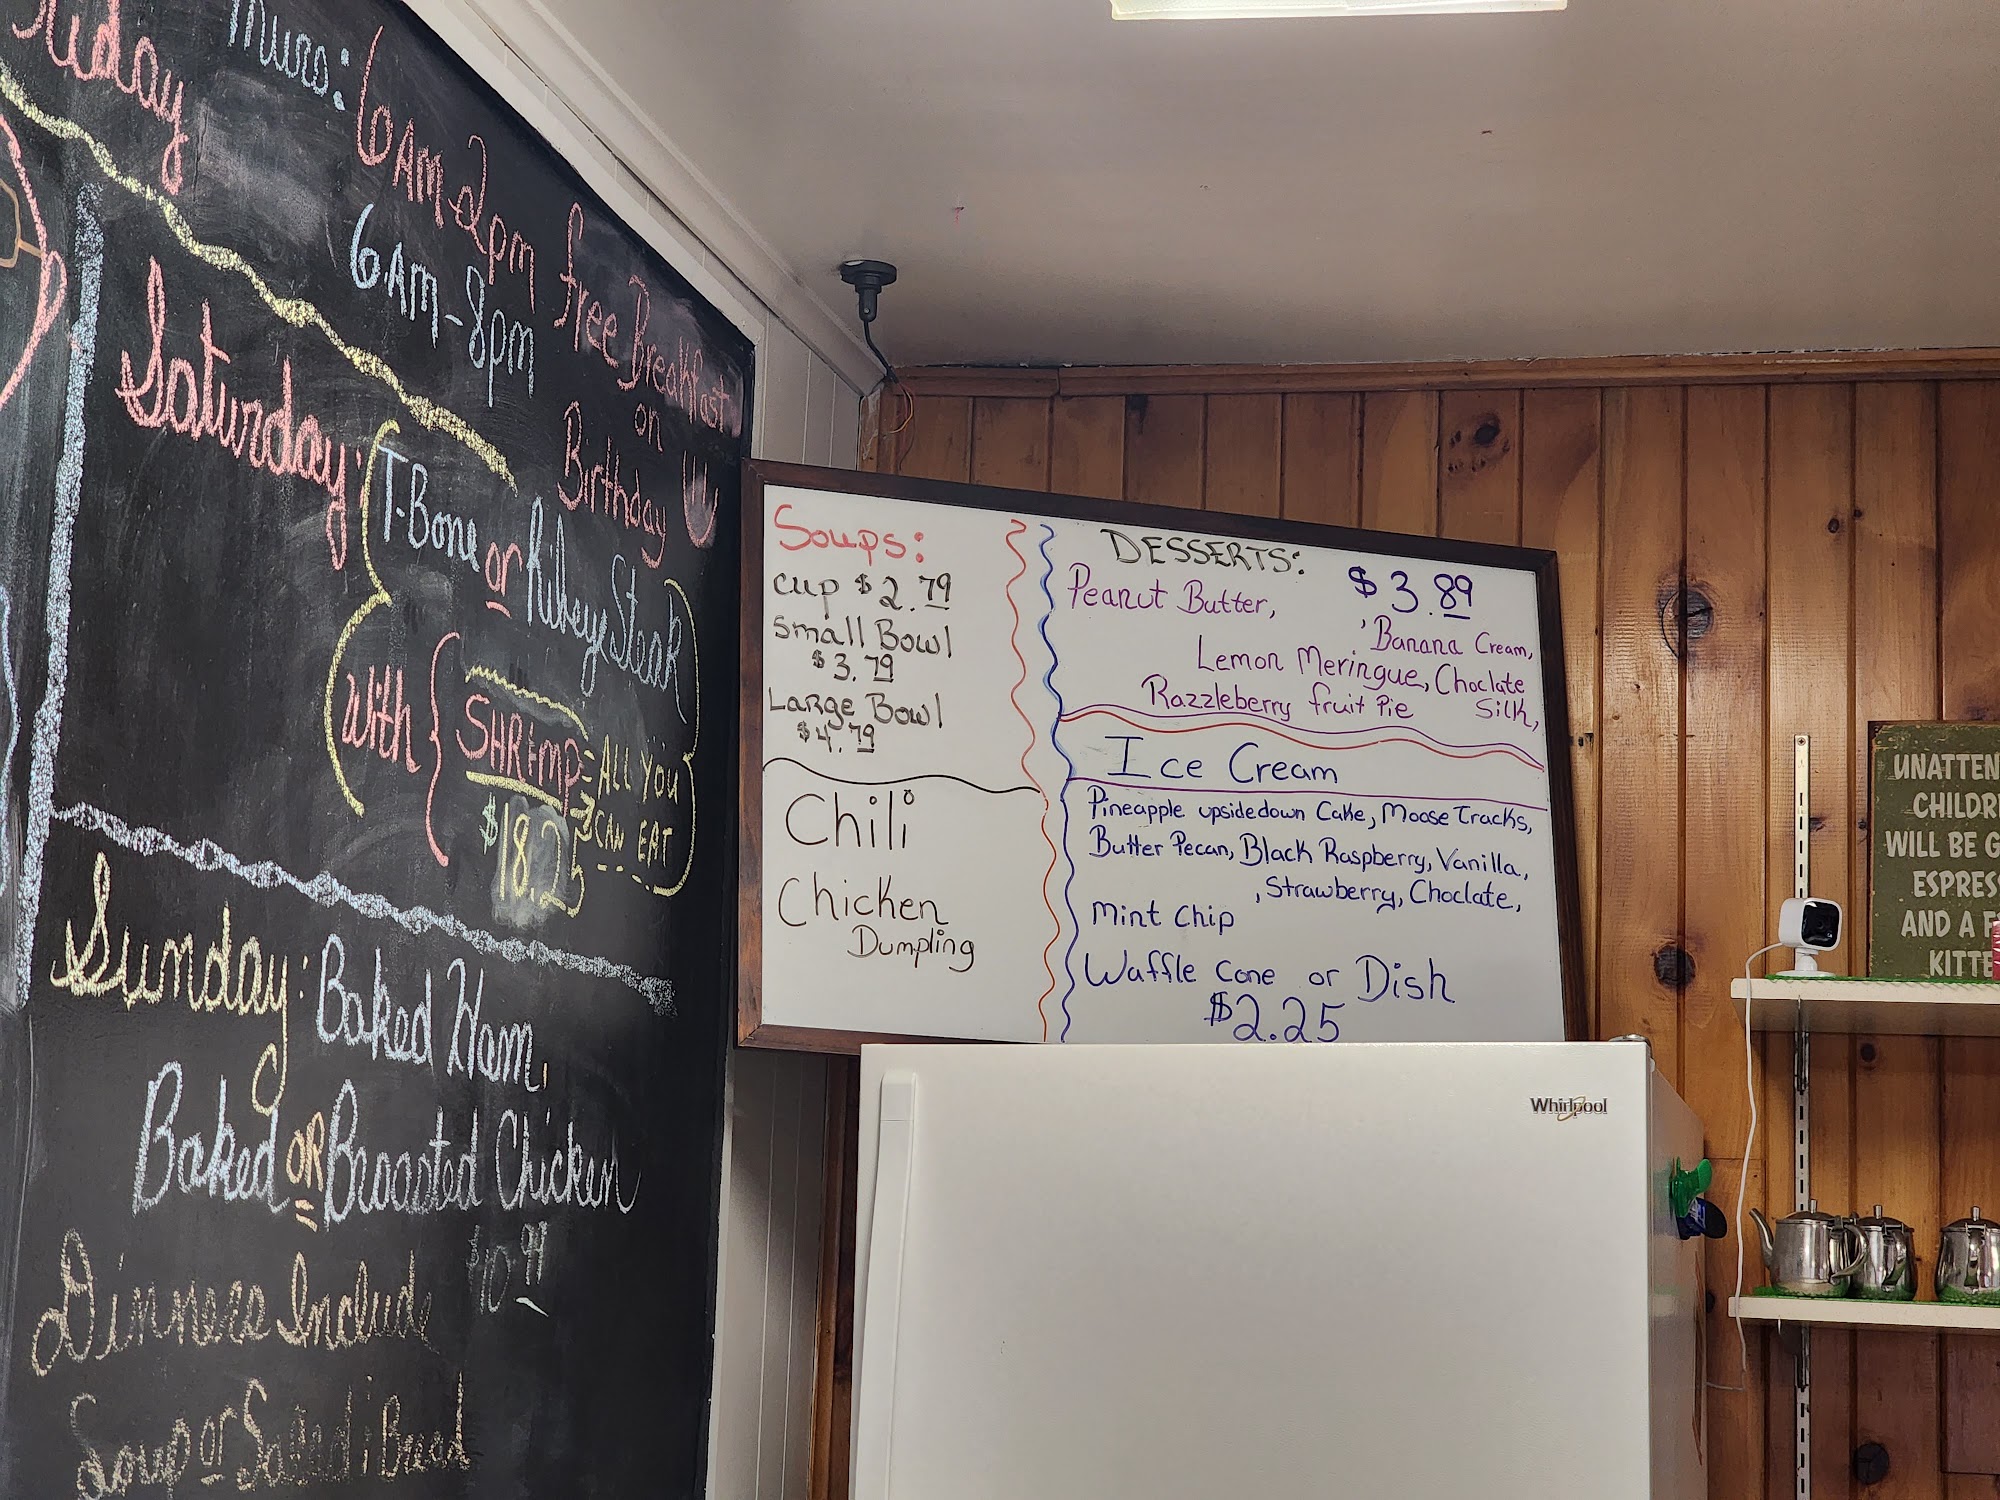 Thurs:
6AM-2pm
6AM-8pm
free Breakfast
on
Birthday
Saturday:
T-Bone or Ribeye Steak
with
SHRIMP = ALL YOU
CAN EAT
$18.25
Sunday: Baked Ham,
Baked OR Broasted Chicken
$10.99
Dinners Include
Soup or Salad & Bread
Soups:
cup $2.79
Small Bowl
$3.79
Large Bowl
$4.79
Chili
Chicken
Dumpling
DESSERTS:
$3.89
Peanut Butter,
Banana Cream,
Lemon Meringue, Choclate
Silk,
Razzleberry fruit Pie
Ice Cream
Pineapple upsidedown Cake, Moose Tracks,
Butter Pecan, Black Raspberry, Vanilla,
, Strawberry, Choclate,
Mint Chip
Waffle Cone or Dish
$2.25
Whirlpool
UNATTEN
CHILDR
WILL BE G
ESPRES
AND A F
KITTE